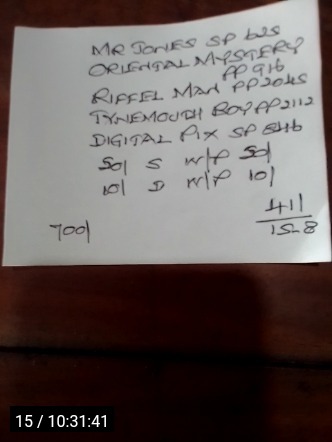 MR JONES SP 625
ORIENTAL MYSTERY
PP 916
RIFFEL MAN PP 2045
TYNEMOUTH BOY PP 2112
DIGITAL PIX SP 646
50/ S W/P 50/
10/ D W/P 10/
411
700/ 15-8
15 / 10:31:41